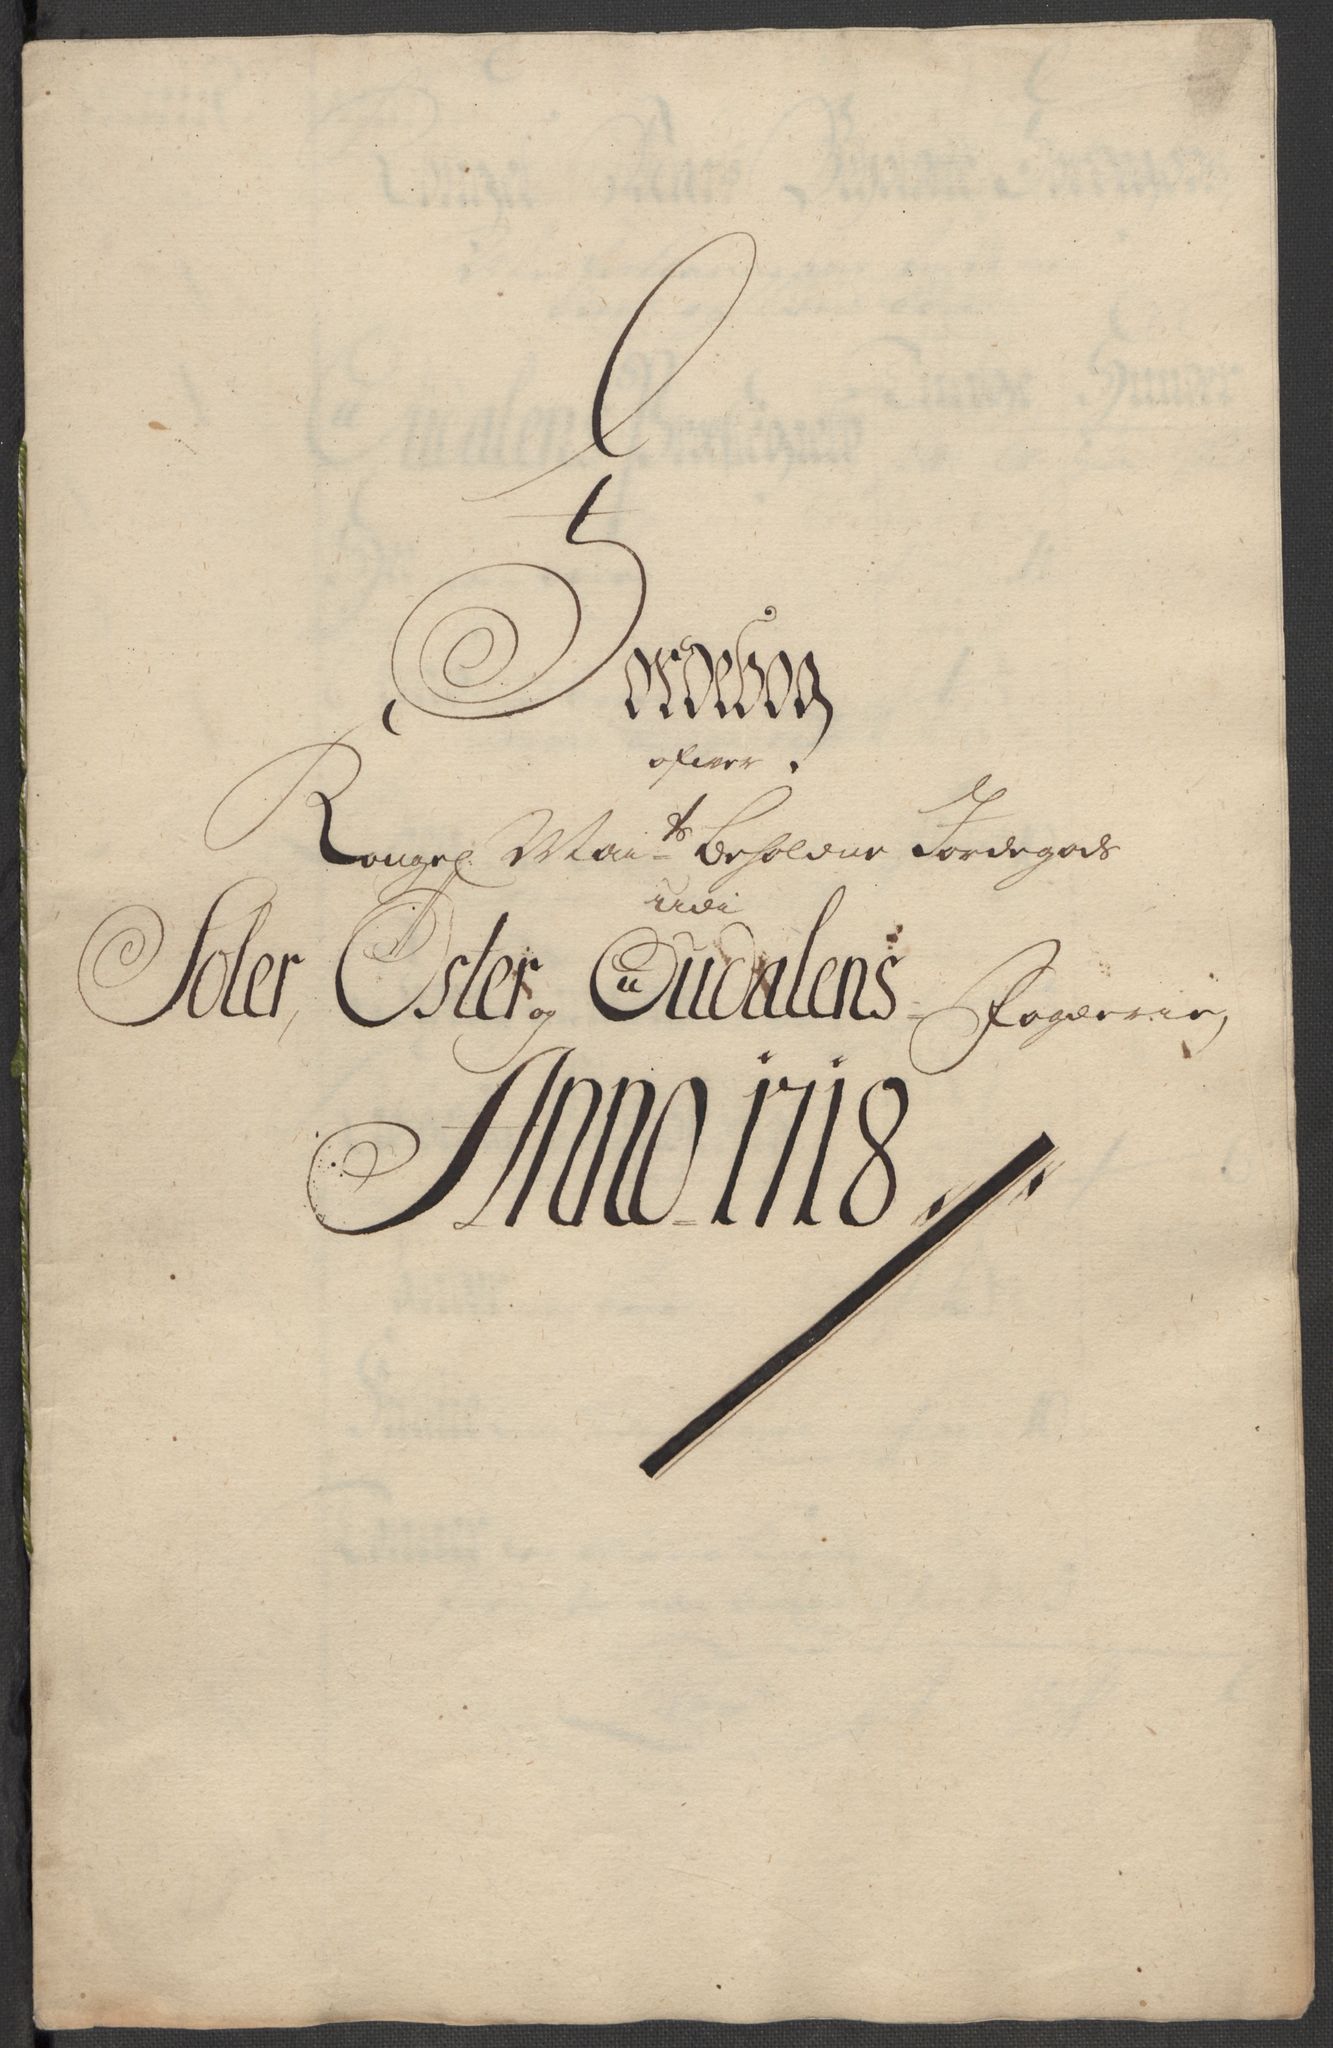 Jordebog
ofwer
Kongel Maits Beholdne Jordegods
udi
Soler, Øster og Oudalens Fogderie
Anno 1718